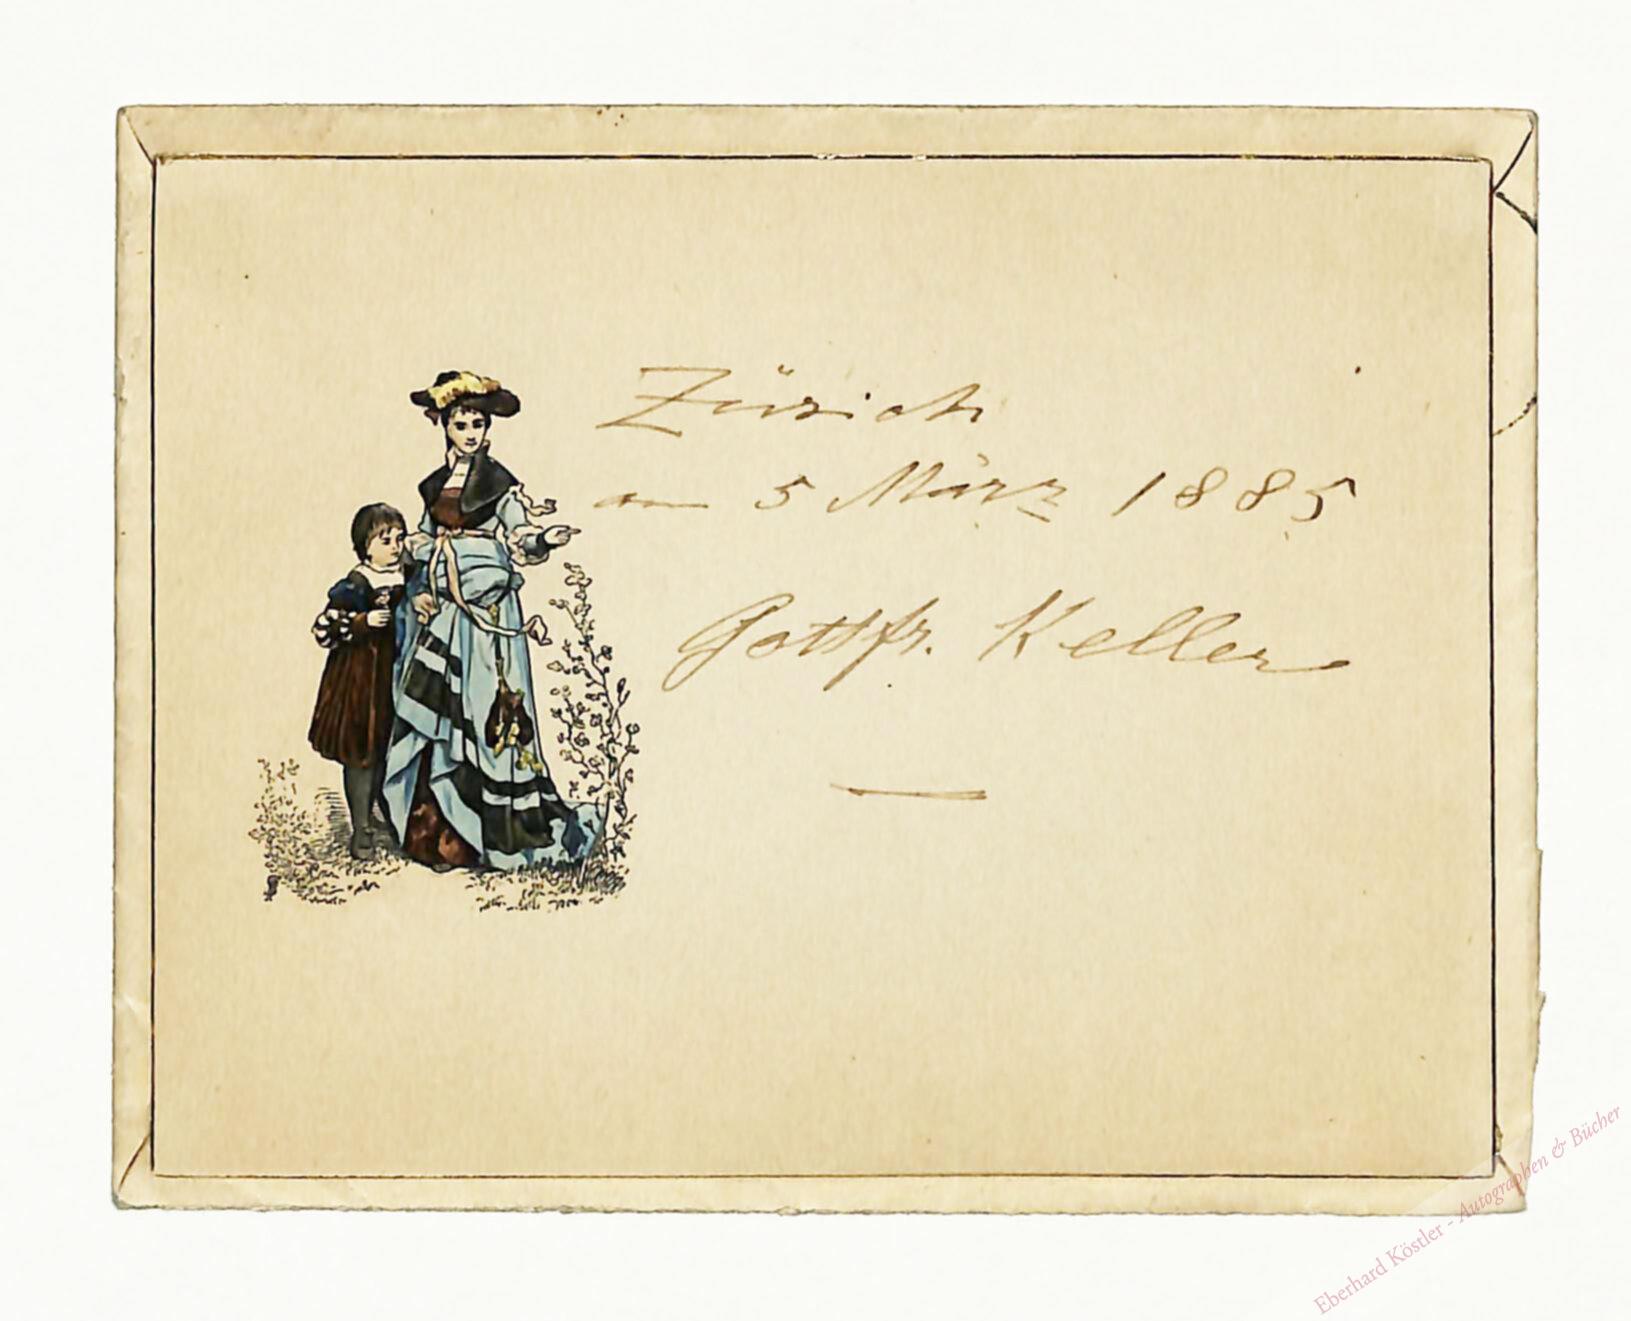 Zürich
am 5 März 1885
Gottfr. Keller
Eberhard Köstler - Autographen & Bücher